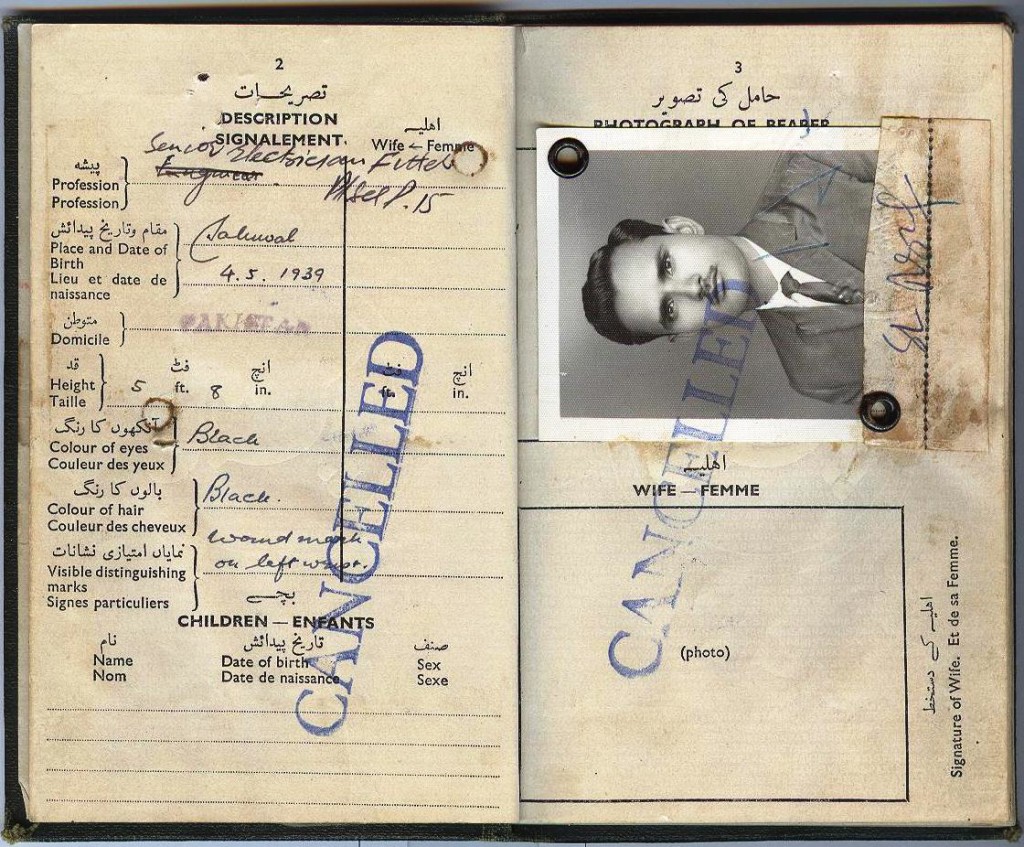 2
تصریحات
DESCRIPTION
SIGNALEMENT.
اهلیہ
Wife — Femme
پیشہ
Profession
Profession
Senior Electrician Fitter
P. 15
مقام وتاریخ پیدائش
Place and Date of
Birth
Lieu et date de
naissance
4.5.1939
متوطن
Domicile
PAKISTAN
قد
فٹ
انچ
فٹ
انچ
Height
Taille
5 ft. 8 in.
ft. in.
آنکھوں کا رنگ
Colour of eyes
Couleur des yeux
Black
بالوں کا رنگ
Colour of hair
Couleur des cheveux
Black.
نمایاں امتیازی نشانات
Visible distinguishing
marks
Signes particuliers
wound mark
on left wrist.
بچے
CHILDREN — ENFANTS
نام
Name
Nom
تاریخ پیدائش
Date of birth
Date de naissance
صنف
Sex
Sexe
CANCELLED
3
حامل کی تصویر
PHOTOGRAPH OF BEARER
اهلیہ
WIFE — FEMME
(photo)
اهلیہ کے دستخط
Signature of Wife. Et de sa Femme.
CANCELLED